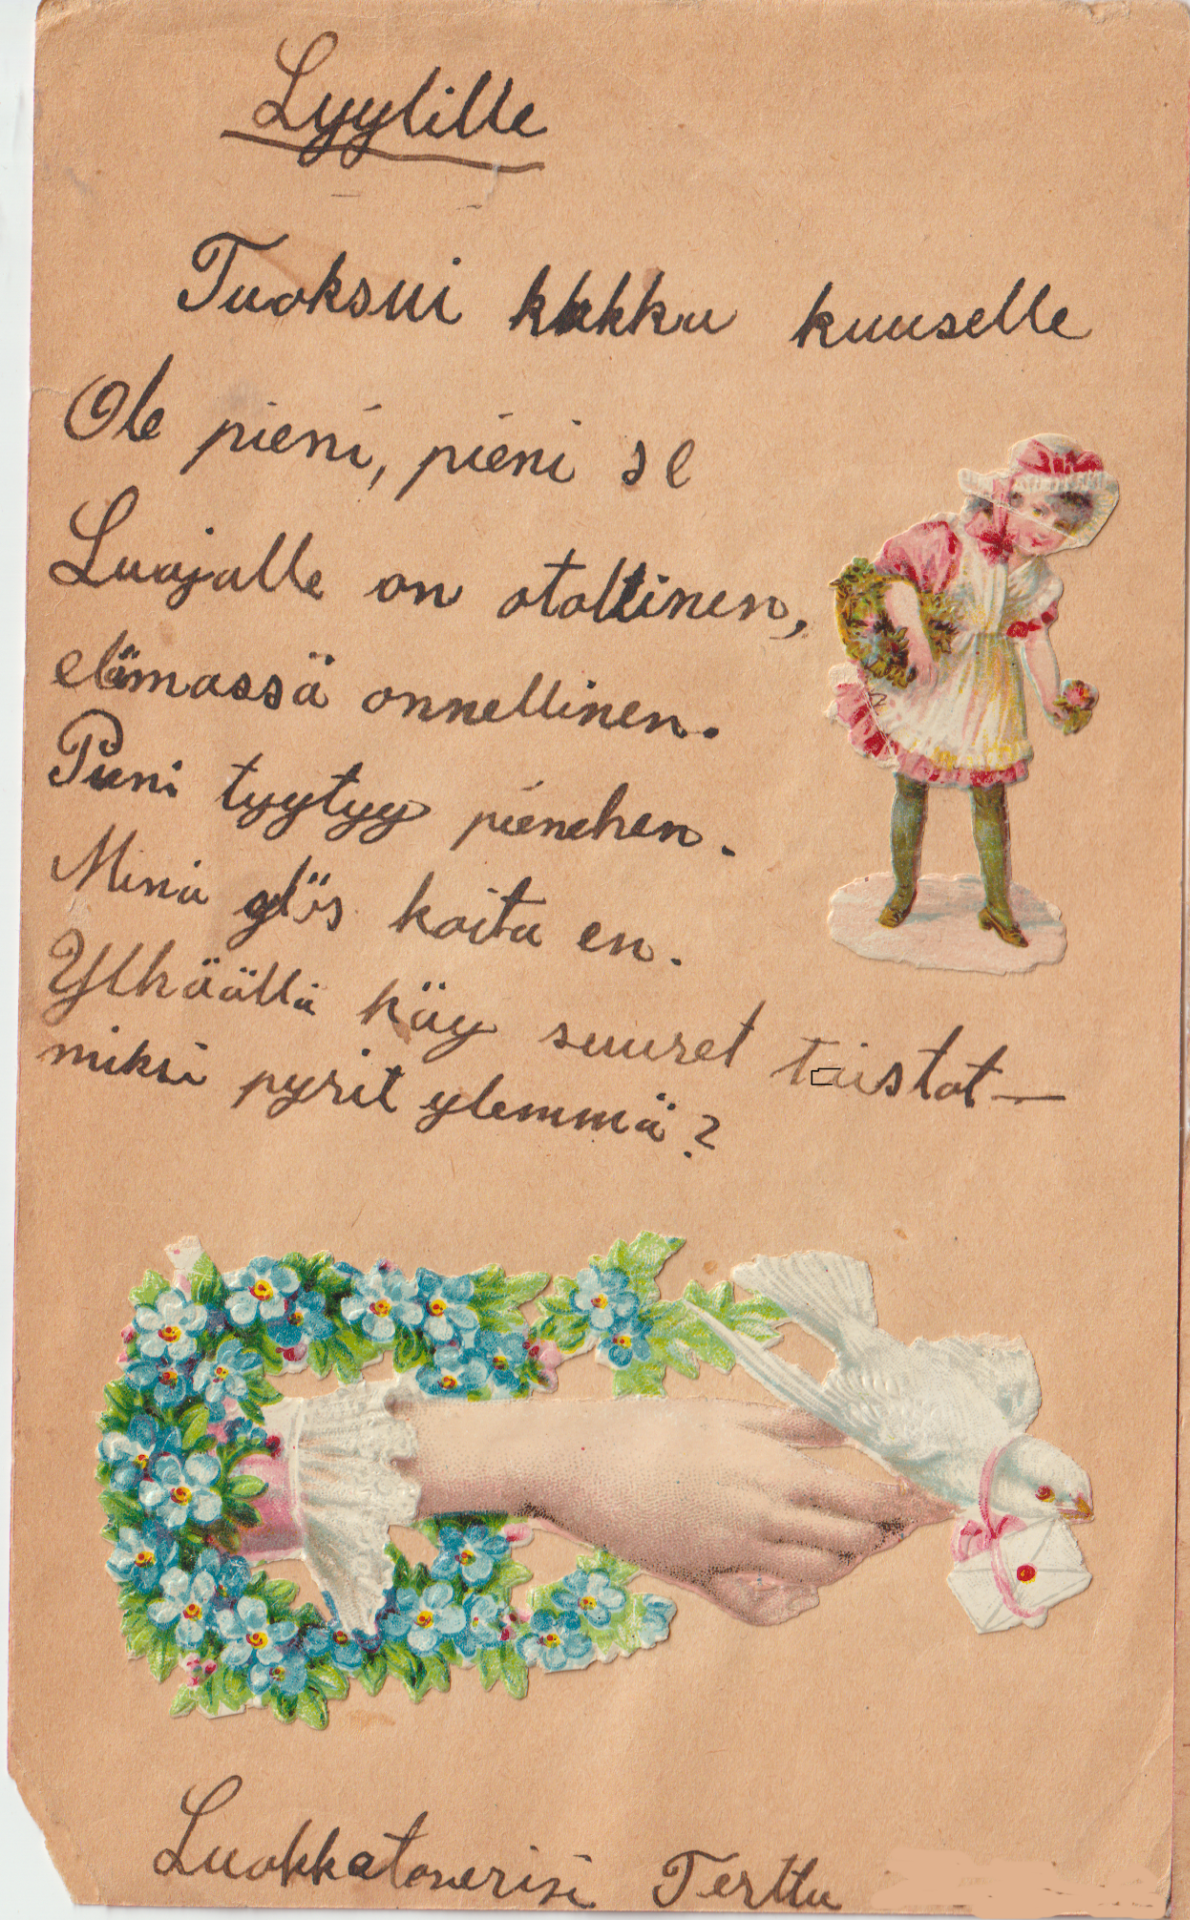 Lyylille
Tuoksui kukka kuuselle
Ole pieni, pieni se
Luojalle on otollinen,
elämassä onnellinen.
Pieni tyytyy pienehen.
Minä ylös koita en.
Ylhäällä käy suuret taistot—
miksi pyrit ylemmä?
Luokkatoverisi Terttu